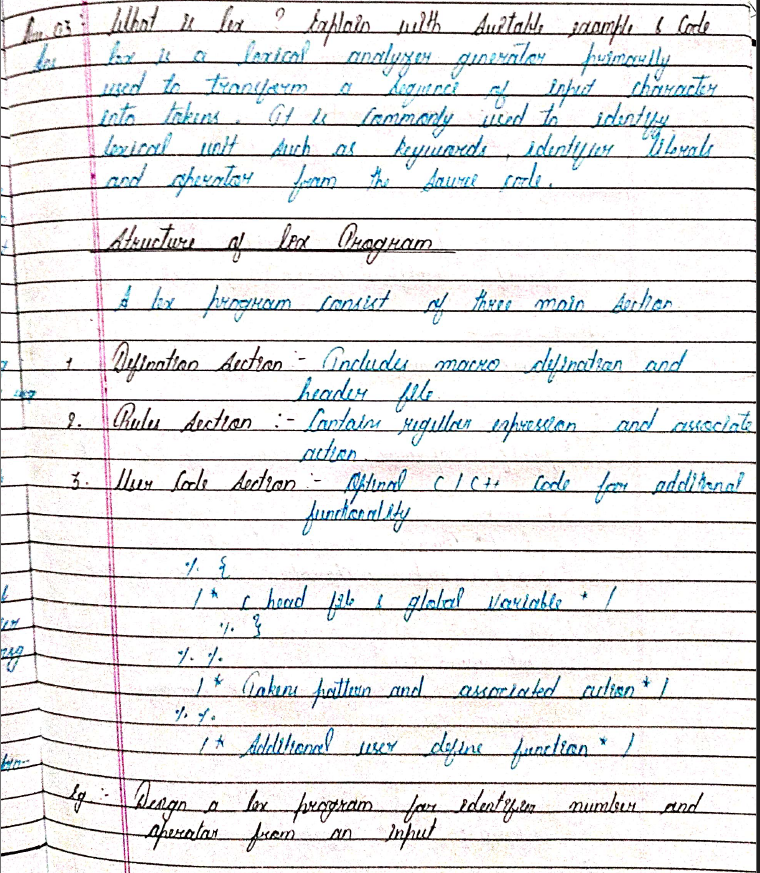 Que. 03 What is lex ? Explain with suitable example & Code
Ans lex is a lexical analyzer generator primarily
used to transform a sequence of input character
into tokens. It is commonly used to identify
lexical unit such as keywords, identifier literals
and operator from the source code.
Structure of lex Program
A lex program consist of three main section
1. Defination Section :- Includes macro defination and
header file
2. Rules Section :- Contains regular expression and associate
action.
3. User Code Section :- Optinal C / C++ Code for additional
functionality
% {
/* C head file & global variable */
% }
% %
/* Tokens pattern and associated action */
% %
/* Additional user define function */
Eg :- Design a lex program for identifier number and
operator from an input